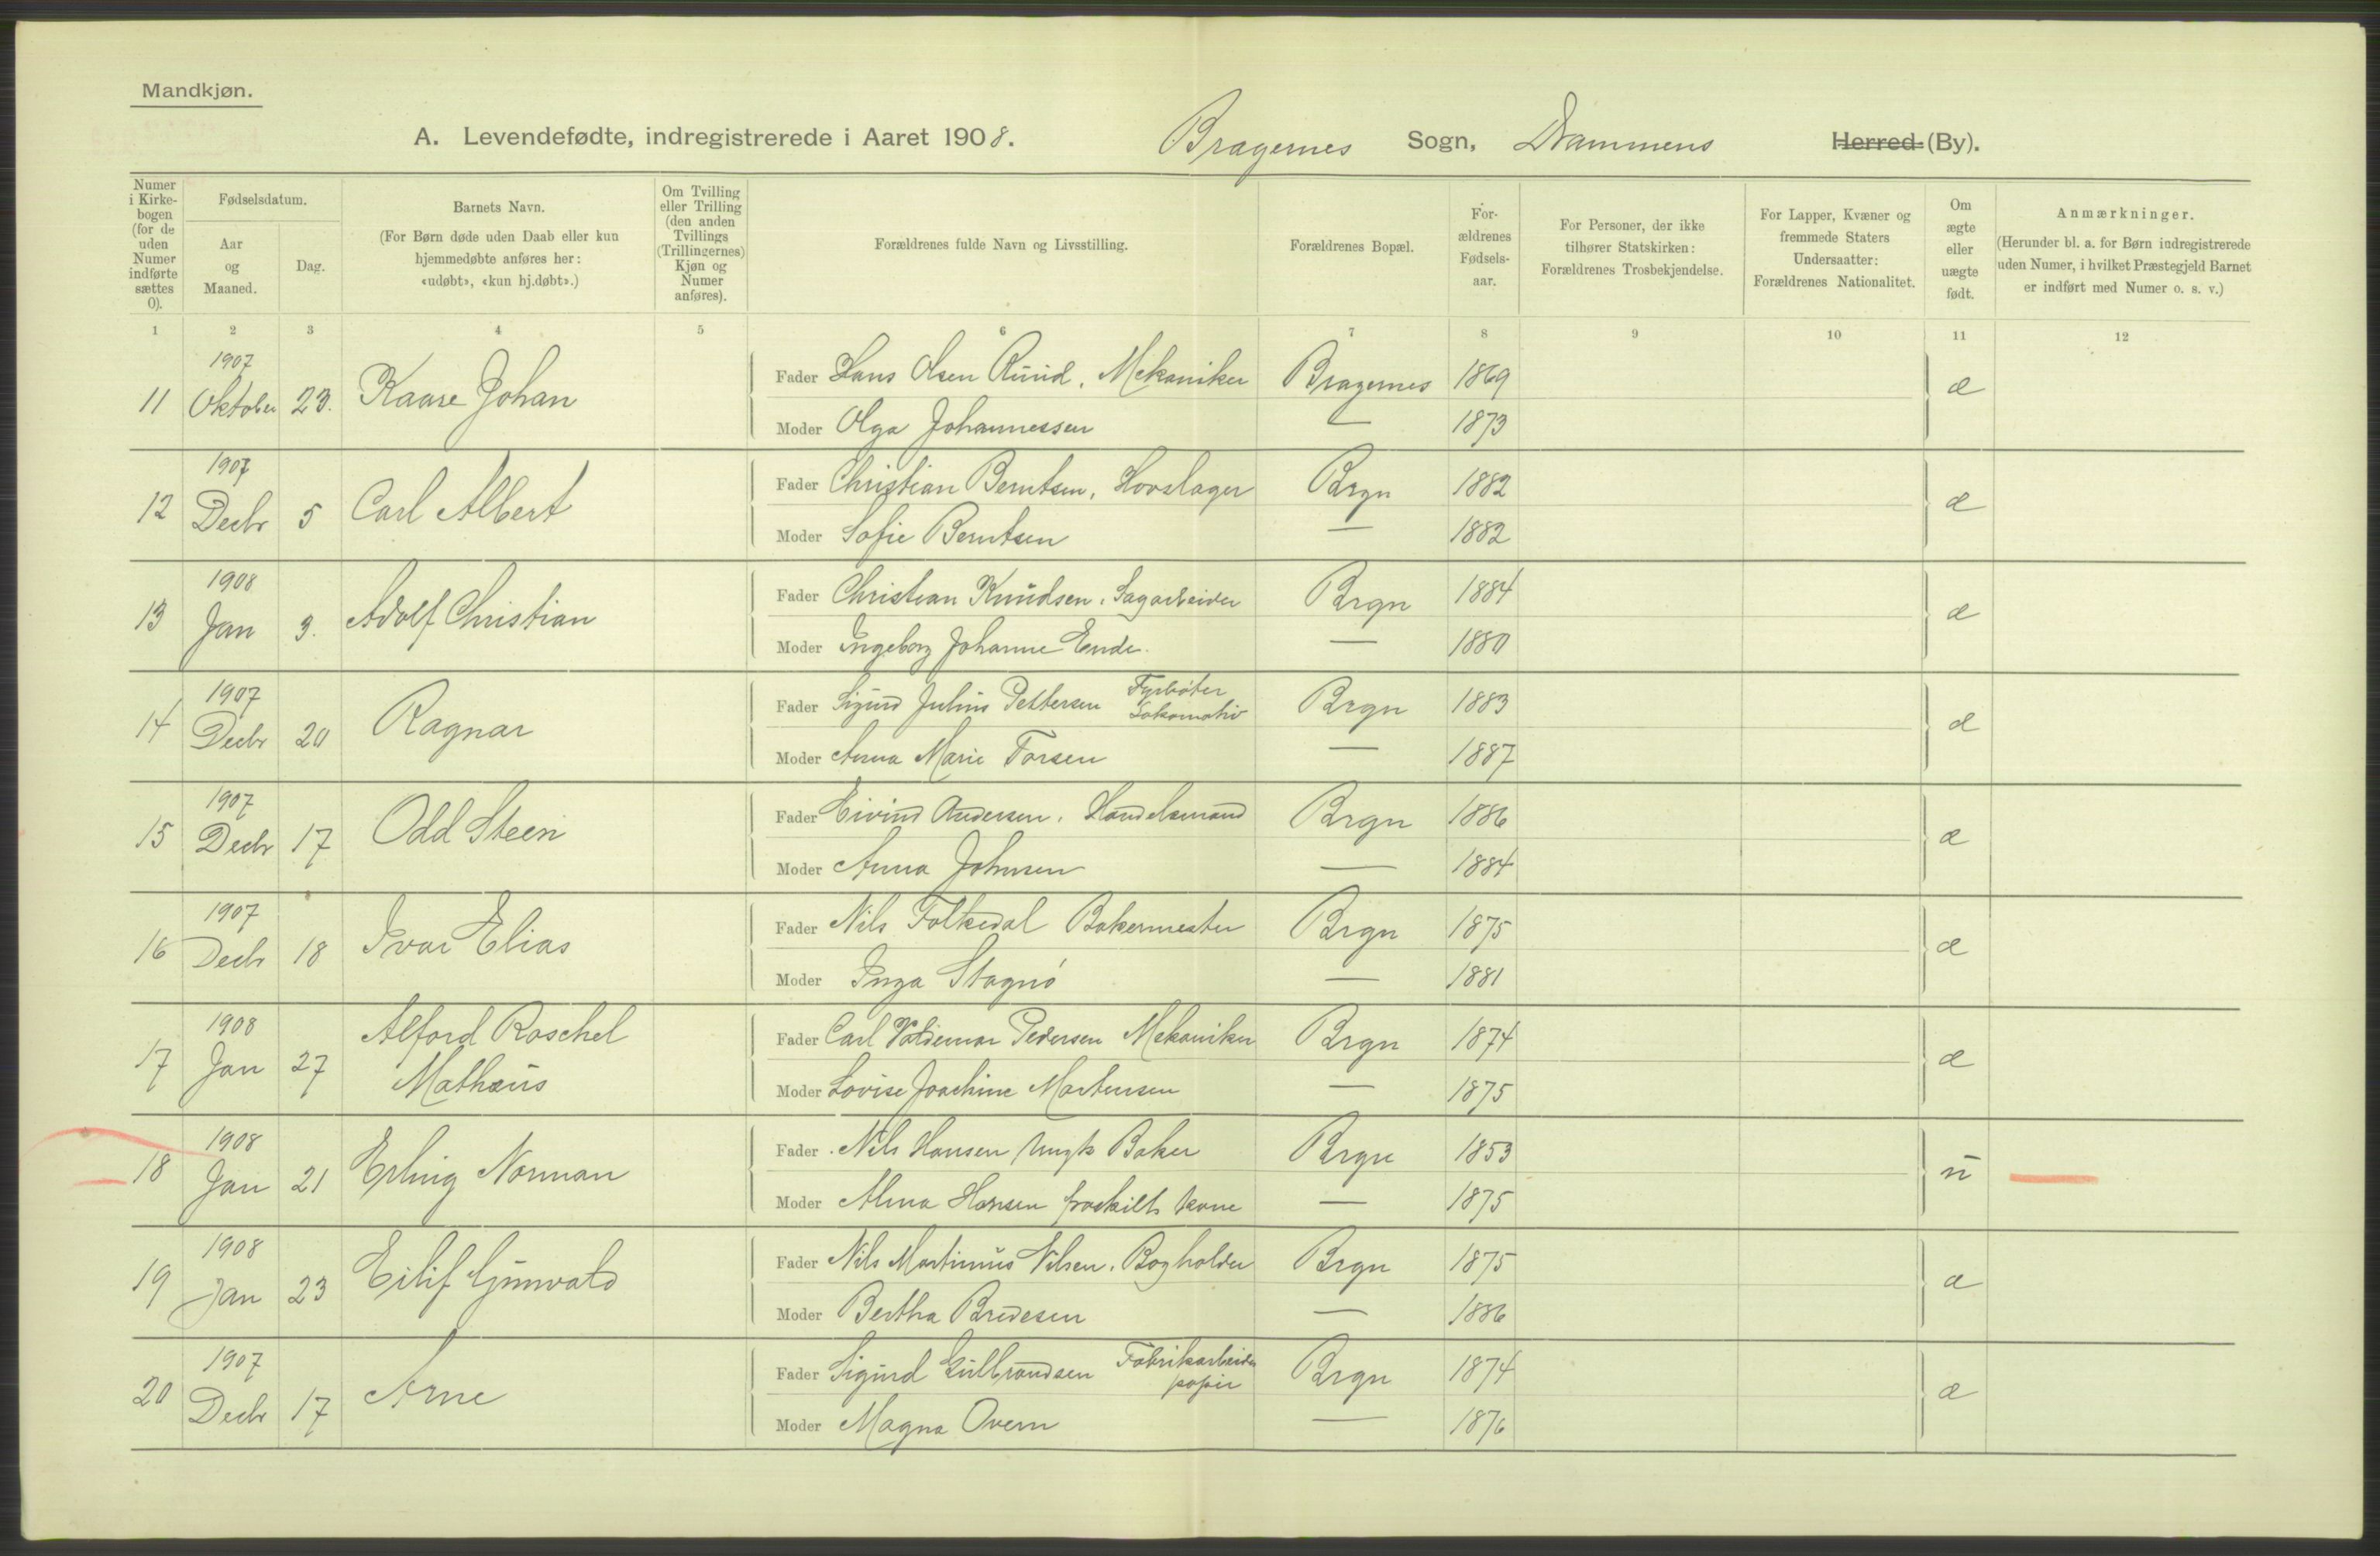 Mandkjøn.
A. Levendefødte, indregistrerede i Aaret 1908. Bragernes Sogn, Drammens Herred (By).
Numer i Kirke-bogen (for de uden Numer indførte sættes 0).
Fødselsdatum.
Aar og Maaned.
Dag.
Barnets Navn.
(For Børn døde uden Daab eller kun hjemmedøbte anføres her: «udøbt», «kun hj.døbt».)
Om Tvilling eller Trilling (den anden Tvillings (Trillingernes) Kjøn og Numer anføres).
Forældrenes fulde Navn og Livsstilling.
Forældrenes Bopæl.
For-ældrenes Fødsels-aar.
For Personer, der ikke tilhører Statskirken: Forældrenes Trosbekjendelse.
For Lapper, Kvæner og fremmede Staters Undersaatter: Forældrenes Nationalitet.
Om ægte eller uægte født.
Anmærkninger.
(Herunder bl. a. for Børn indregistrerede uden Numer, i hvilket Præstegjeld Barnet er indført med Numer o. s. v.)
1 2 3 4 5 6 7 8 9 10 11 12
1907
11 Oktober 23. Kaare Johan Fader Hans Olsen Ruud, Mekaniker Bragernes 1869 æ
Moder Olga Johannessen — 1873
1907
12 Decbr 5 Carl Albert Fader Christian Berntsen, Hovslager Brgn 1882 æ
Moder Sofie Berntsen — 1882
1908
13 Jan 3. Adolf Christian Fader Christian Knudsen, Sagarbeider Brgn 1884 æ
Moder Ingeborg Johanne Ende. — 1880
1907
14 Decbr 20 Ragnar Fader Sigurd Julius Pettersen Fyrbøter Lokomotiv Brgn 1883 æ
Moder Anna Marie Torsen — 1887
1907
15 Decbr 17 Odd Steen Fader Eivind Andersen, Handelsmand Brgn 1886 æ
Moder Anna Johnsen — 1884
1907
16 Decbr 18 Ivar Elias Fader Nils Folkedal Bakermester Brgn 1875 æ
Moder Inga Stagnø — 1881
1908
17 Jan 27 Alford Roschel Mathæus Fader Carl Valdemar Pedersen Mekaniker Brgn 1874 æ
Moder Lovise Joachime Martensen — 1875
1908
18 Jan 21 Erling Norman Fader Nils Hansen Ungk Baker Brgn 1853 u
Moder Alma Hansen fraskilt kone — 1875
1908
19 Jan 23 Eilif Gunvald Fader Nils Martinius Nilsen, Bogholder Brgn 1875 æ
Moder Bertha Bredesen — 1886
1907
20 Decbr 17 Arne Fader Sigurd Gulbrandsen Fabrikarbeider papir Brgn 1874 æ
Moder Magna Overn — 1876